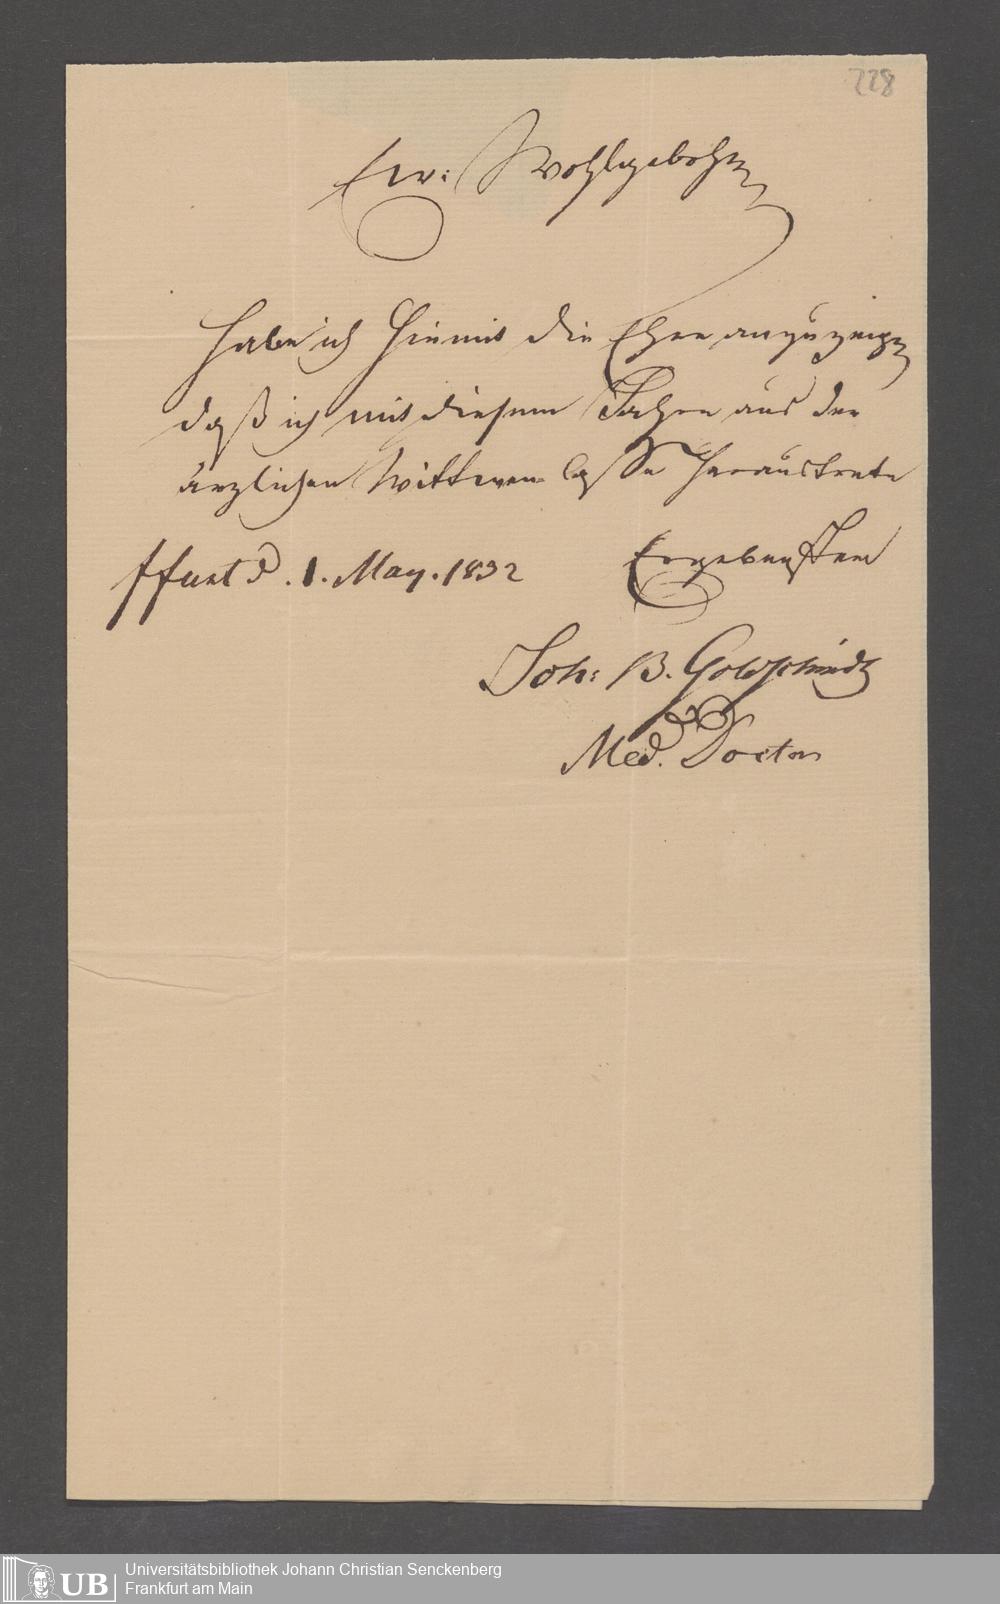 228
Ew: Wohlgebohrn
habe ich hiemit die Ehre anzuzeigen
daß ich mit diesem Jahre aus der
ärzlichen Wittwen Casse heraustrete
ffurt d. 1. May. 1832 Ergebenster
Joh: B. Goldschmidt
Med. Doctor
UB
Universitätsbibliothek Johann Christian Senckenberg
Frankfurt am Main